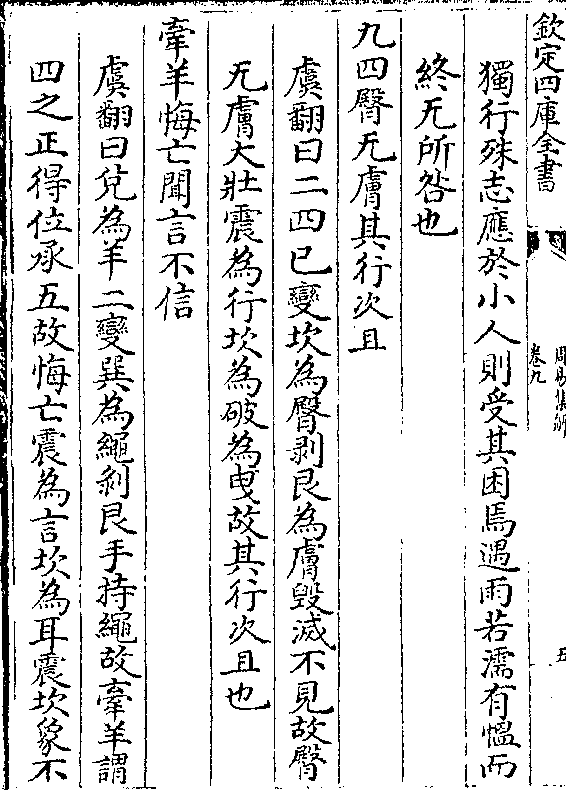 欽定四庫全書
周易集解
卷九
五
獨行殊志應於小人則受其困焉遇雨若濡有慍而
終无所咎也
九四臀无膚其行次且
虞翻曰二四已變坎為臀剥艮為膚毁滅不見故臀
无膚大壯震為行坎為破為曳故其行次且也
牽羊悔亡聞言不信
虞翻曰兌為羊二變巽為繩剥艮手持繩故牽羊謂
四之正得位承五故悔亡震為言坎為耳震坎象不